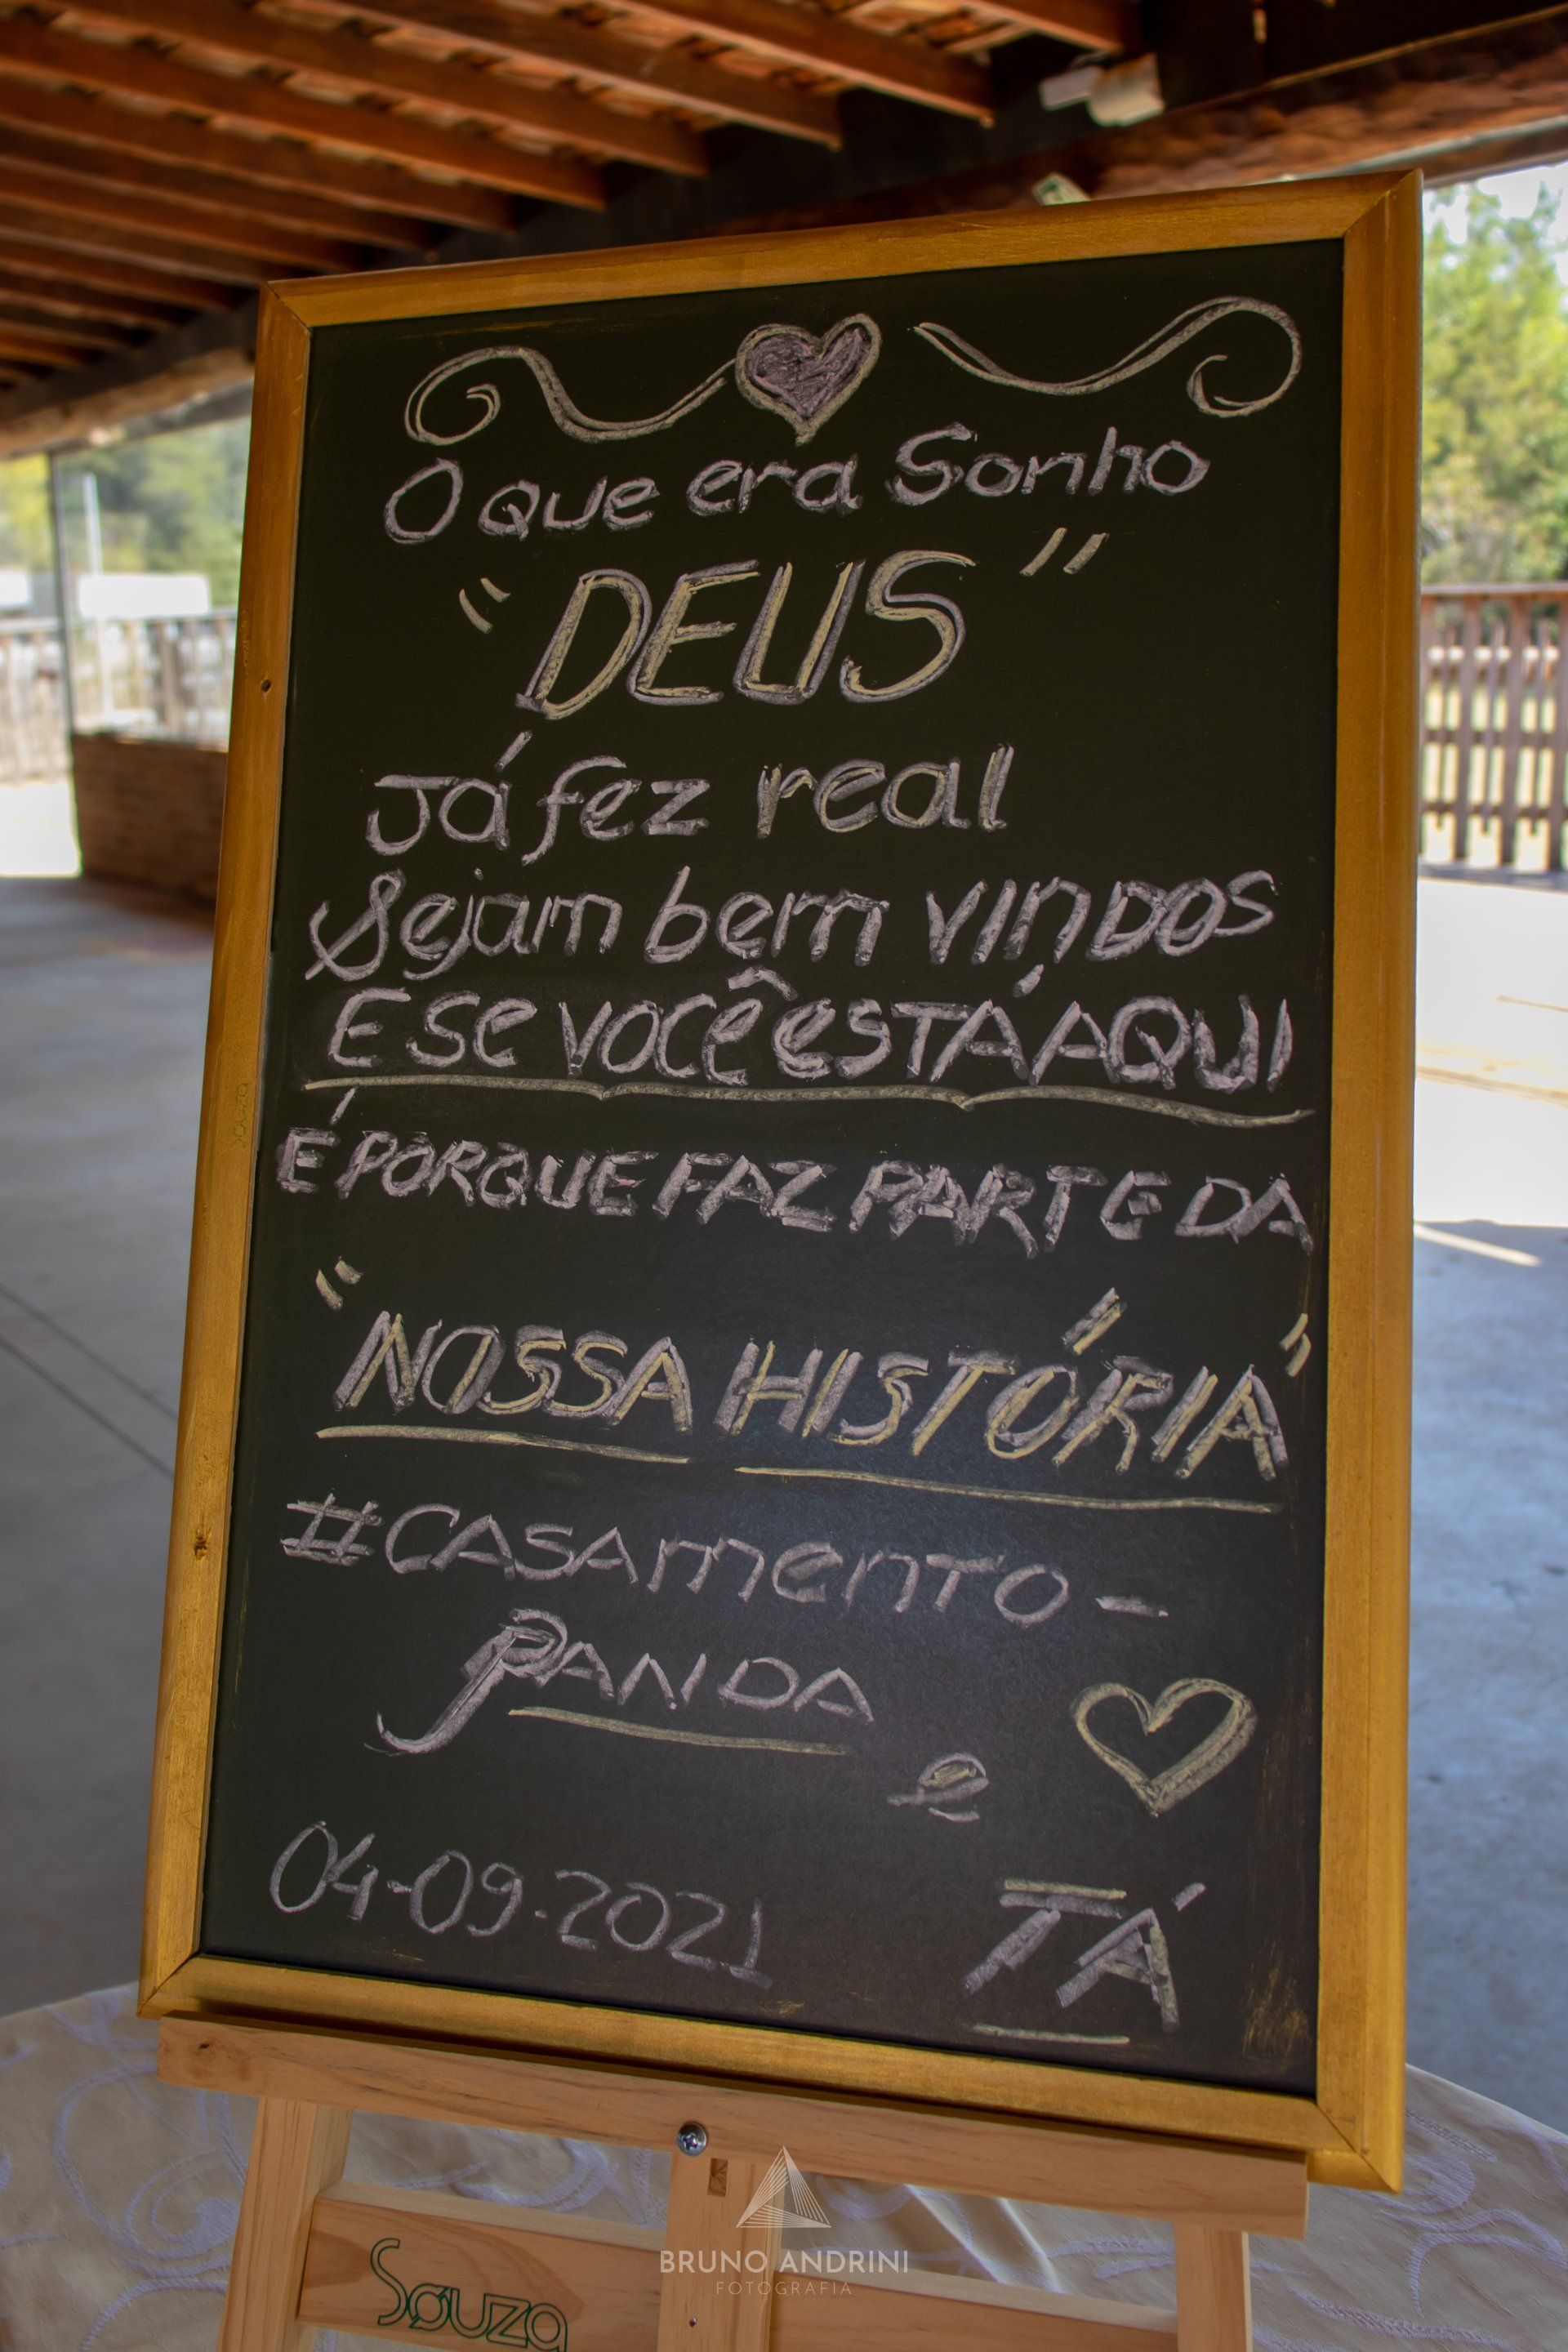 O que era Sonho
"DEUS"
Já fez real
Sejam bem vindos
E se você está aqui
É PORQUE FAZ PARTE DA
"NOSSA HISTÓRIA"
#CASAmento-
PANDA
e
TÁ
04-09-2021
Souza
BRUNO ANDRINI
FOTOGRAFIA